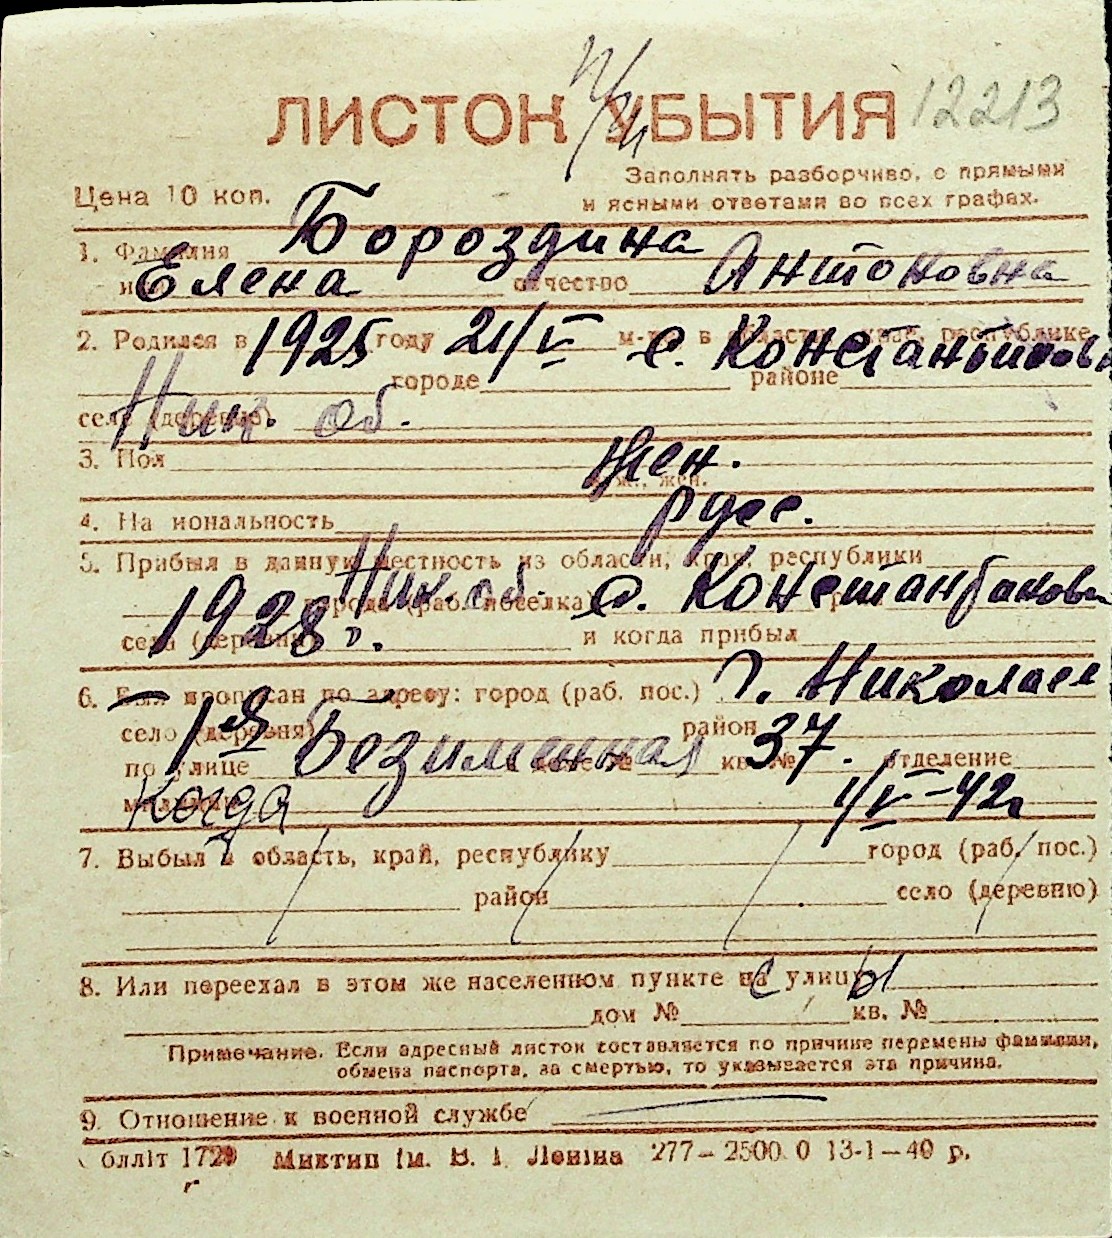 ЛИСТОК УБЫТИЯ 12213
Заполнять разборчиво, с прямыми
Цена 10 коп. и ясными ответами во всех графах.
1. Фамилия Бороздина
Елена отчество Антоновна
2. Родился в 1925 году 21/V м-це в области, крае, республике с.
городе районе
село (деревне) Ник. об.
3. Пол Жен.
муж., жен.
4. Национальность русс.
5. Прибыл в данную местность из области, края, республики
Ник. об. города (раб. поселка) с.
1928 г. села (деревни) и когда прибыл
6. Был прописан по адресу: город (раб. пос.) г. Николаев
село (деревня) район
по улице 1я Безименная кв. № 37. отделение
Когда 1/V-42г
7. Выбыл в область, край, республику город (раб. пос.)
район село (деревню)
8. Или переехал в этом же населенном пункте на с улицы
дом № кв. №
Примечание. Если адресный листок составляется по причине перемены фамилии,
обмена паспорта, за смертью, то указывается эта причина.
9. Отношение к военной службе
блліт 1729 Миктип ім. В. І. Леніна 277–2500 0 13-1–40 р.